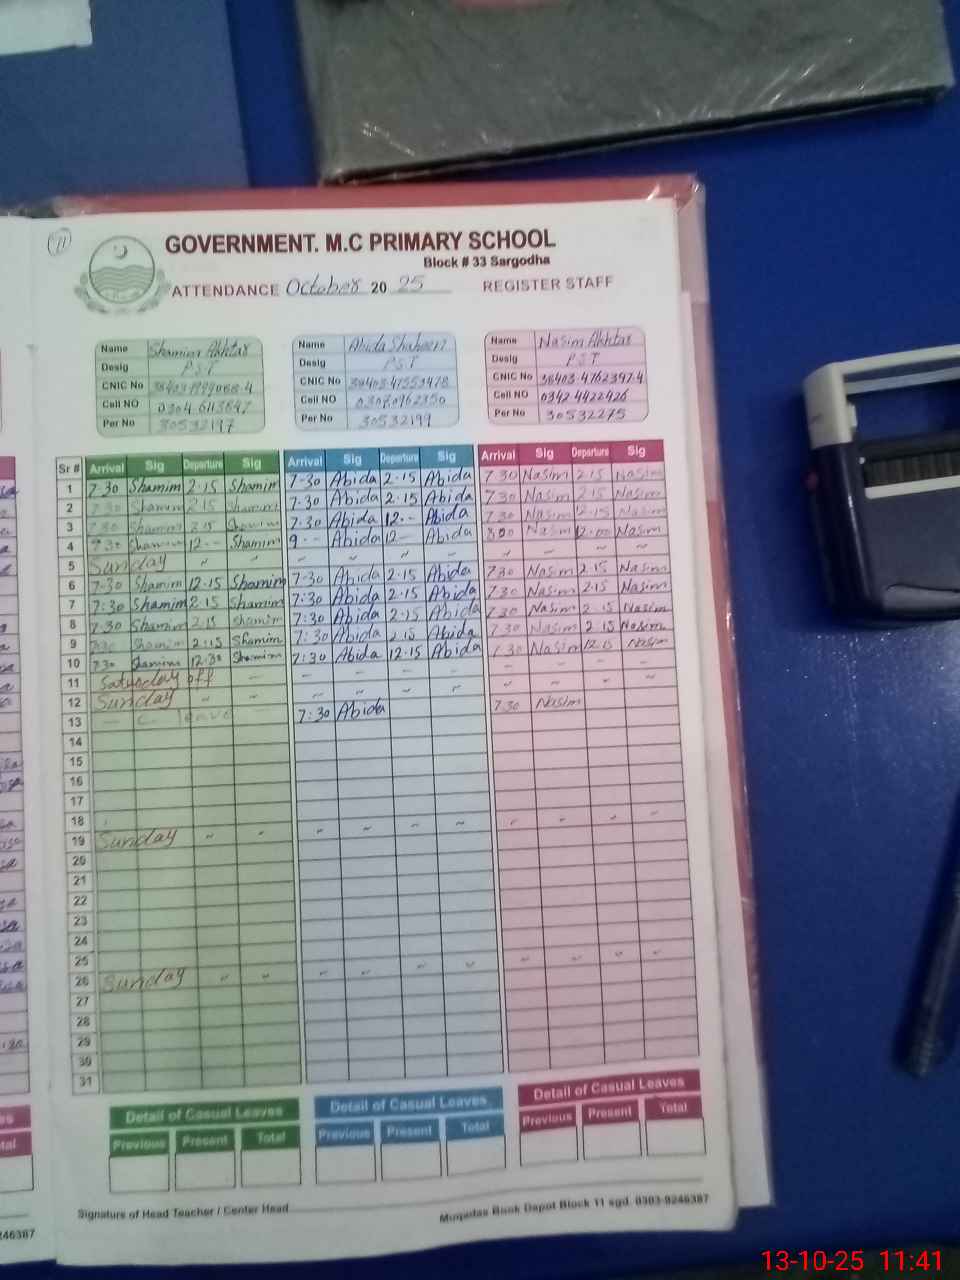 11
GOVERNMENT. M.C PRIMARY SCHOOL
Block # 33 Sargodha
ATTENDANCE October 20 25 REGISTER STAFF
Name Shamim Akhtar Name Abida Shaheen Name Nasim Akhtar
Desig PST Desig PST Desig PST
CNIC No CNIC No CNIC No 38403-4762397-4
Cell NO Cell NO 03070962350 Cell NO 0342-4422426
Per No 30532197 Per No 30532199 Per No 30532275
Sr # Arrival Sig Departure Sig Arrival Sig Departure Sig Arrival Sig Departure Sig
1 7-30 Shamim 2-15 Shamim 7-30 Abida 2-15 Abida 7 30 Nasim 2 15 Nasim
2 7 30 Shamim 2 15 Shamim 7-30 Abida 2-15 Abida 7 30 Nasim 2 15 Nasim
3 7 30 Shamim 2 15 Shamim 7-30 Abida 12-- Abida 7 30 Nasim 12-15 Nasim
4 Shamim 12-- Shamim 9-- Abida 12- Abida 8 00 Nasim 12-00 Nasim
5 Sunday
6 7-30 Shamim 12-15 Shamim 7-30 Abida 2-15 Abida 7 30 Nasim 2-15 Nasim
7 7:30 Shamim 2-15 Shamim 7:30 Abida 2-15 Abida 7 30 Nasim 2-15 Nasim
8 7-30 Shamim 2-15 Shamim 7:30 Abida 2:15 Abida 7 30 Nasim 2-15 Nasim
9 7 30 Shamim 2:15 Shamim 7:30 Abida 2 15 Abida 7 30 Nasim 2 15 Nasim
10 7 30 Shamim 12-30 Shamim 7:30 Abida 12-15 Abida 7 30 Nasim 12-15 Nasim
11 Saturday off - -
12 Sunday
13 - C leave - 7:30 Abida 7 30 Nasim
14
15
16
17
18
19 Sunday
20
21
22
23
24
25
26 Sunday
27
28
29
30
31
Detail of Casual Leaves Detail of Casual Leaves Detail of Casual Leaves
Previous Present Total Previous Present Total Previous Present Total
Signature of Head Teacher / Center Head Muqadas Book Depot Block 11 sgd. 0303-9246387
246387
13-10-25 11:41